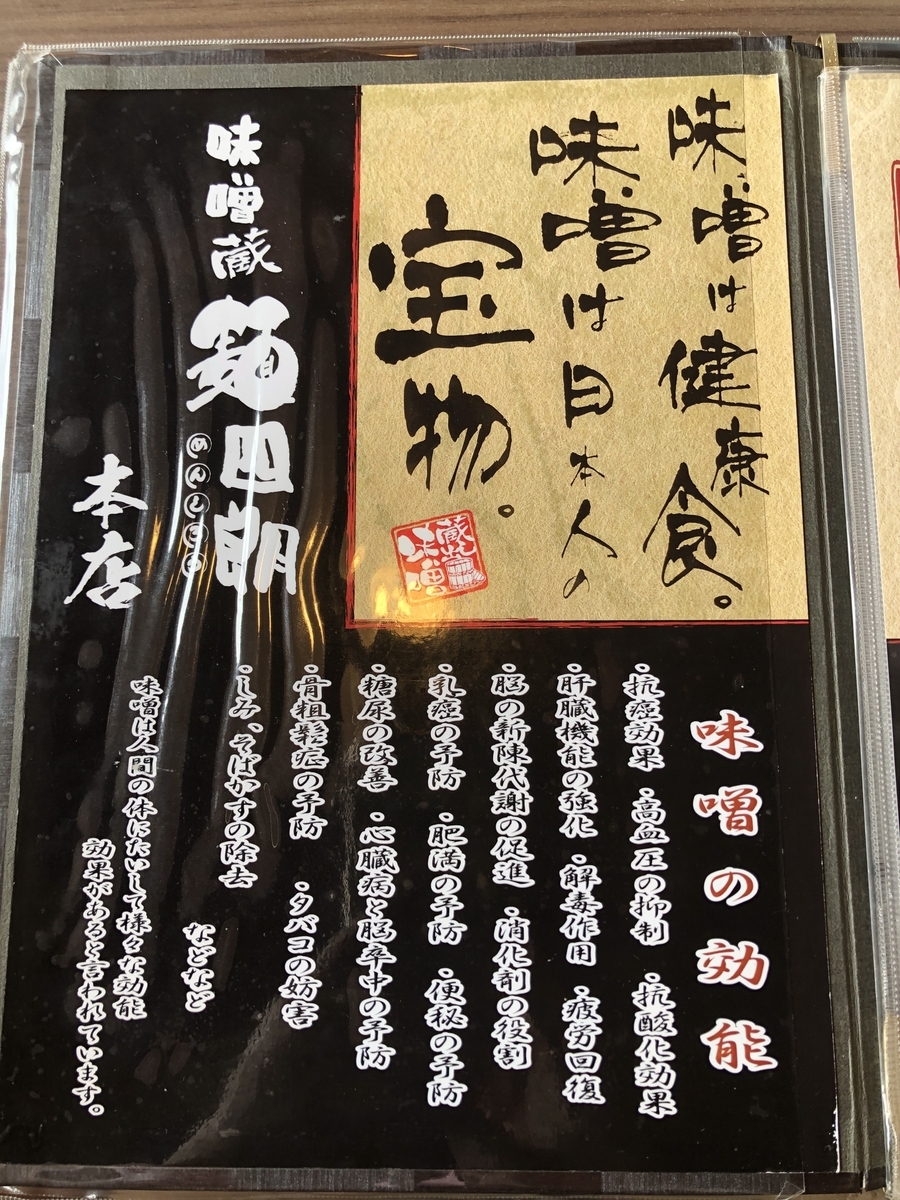 味噌は健康食。
味噌は日本人の
宝物。
蔵出し
味噌
味噌蔵 麺四朗
めんしろう
本店
味噌の効能
・抗癌効果 ・高血圧の抑制 ・抗酸化効果
・肝臓機能の強化 ・解毒作用 ・疲労回復
・脳の新陳代謝の促進 ・消化剤の役割
・乳癌の予防 ・肥満の予防 ・便秘の予防
・糖尿の改善 ・心臓病と脳卒中の予防
・骨粗鬆症の予防 ・タバコの妨害
・しみ、そばかすの除去
などなど
味噌は人間の体にたいして様々な効能
効果があると言われています。